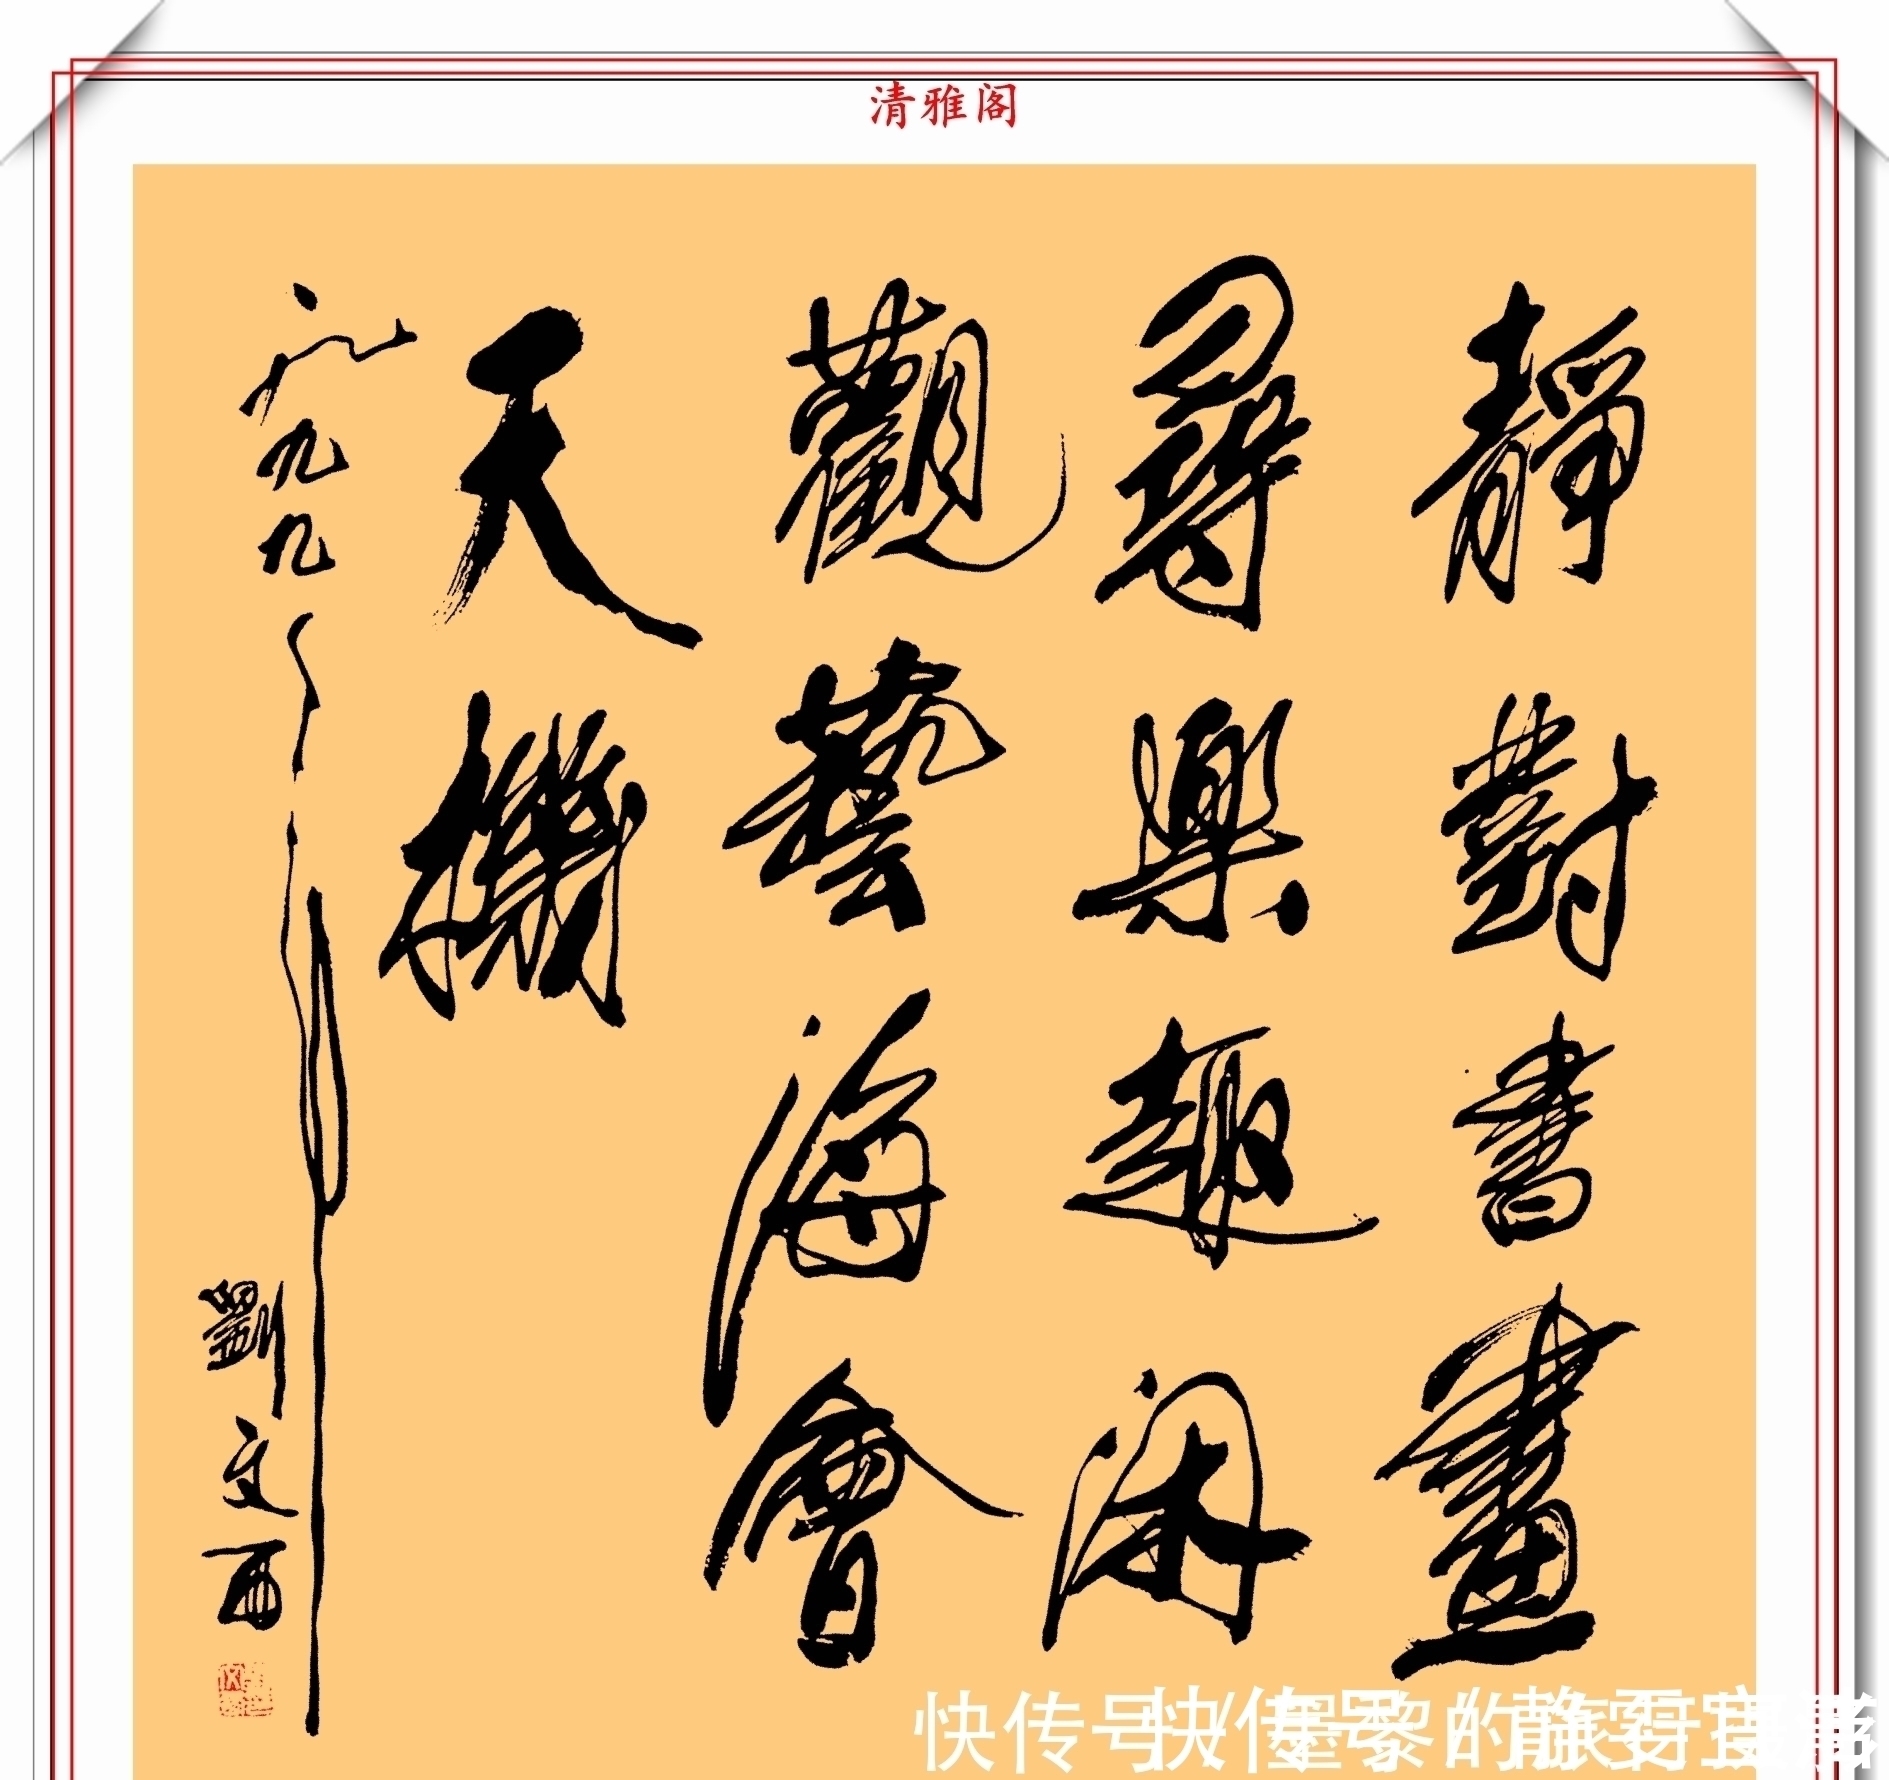 清雅阁
靜對書畫
尋樂趣閑
觀藝海會
天機
一九九
劉文西
快传号